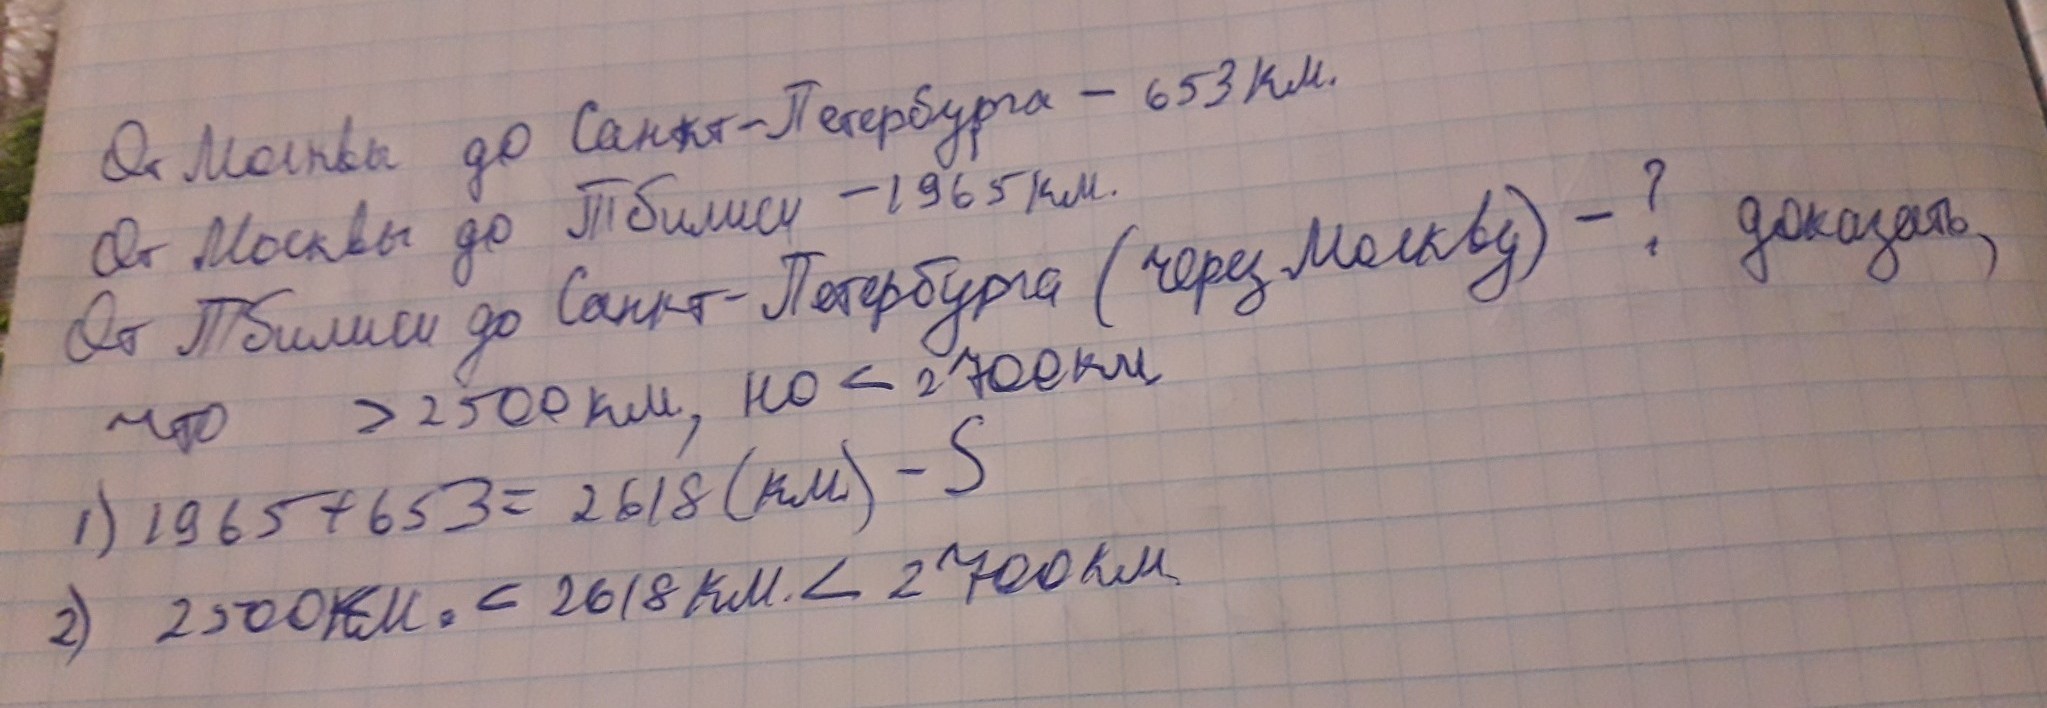 От Москвы до Санкт-Петербурга - 653 км.
От Москвы до Тбилиси - 1965 км.
От Тбилиси до Санкт-Петербурга (через Москву) - ? доказать,
что > 2500 км, но < 2700 км
1) 1965 + 653 = 2618 (км) - S
2) 2500 км. < 2618 км. < 2700 км